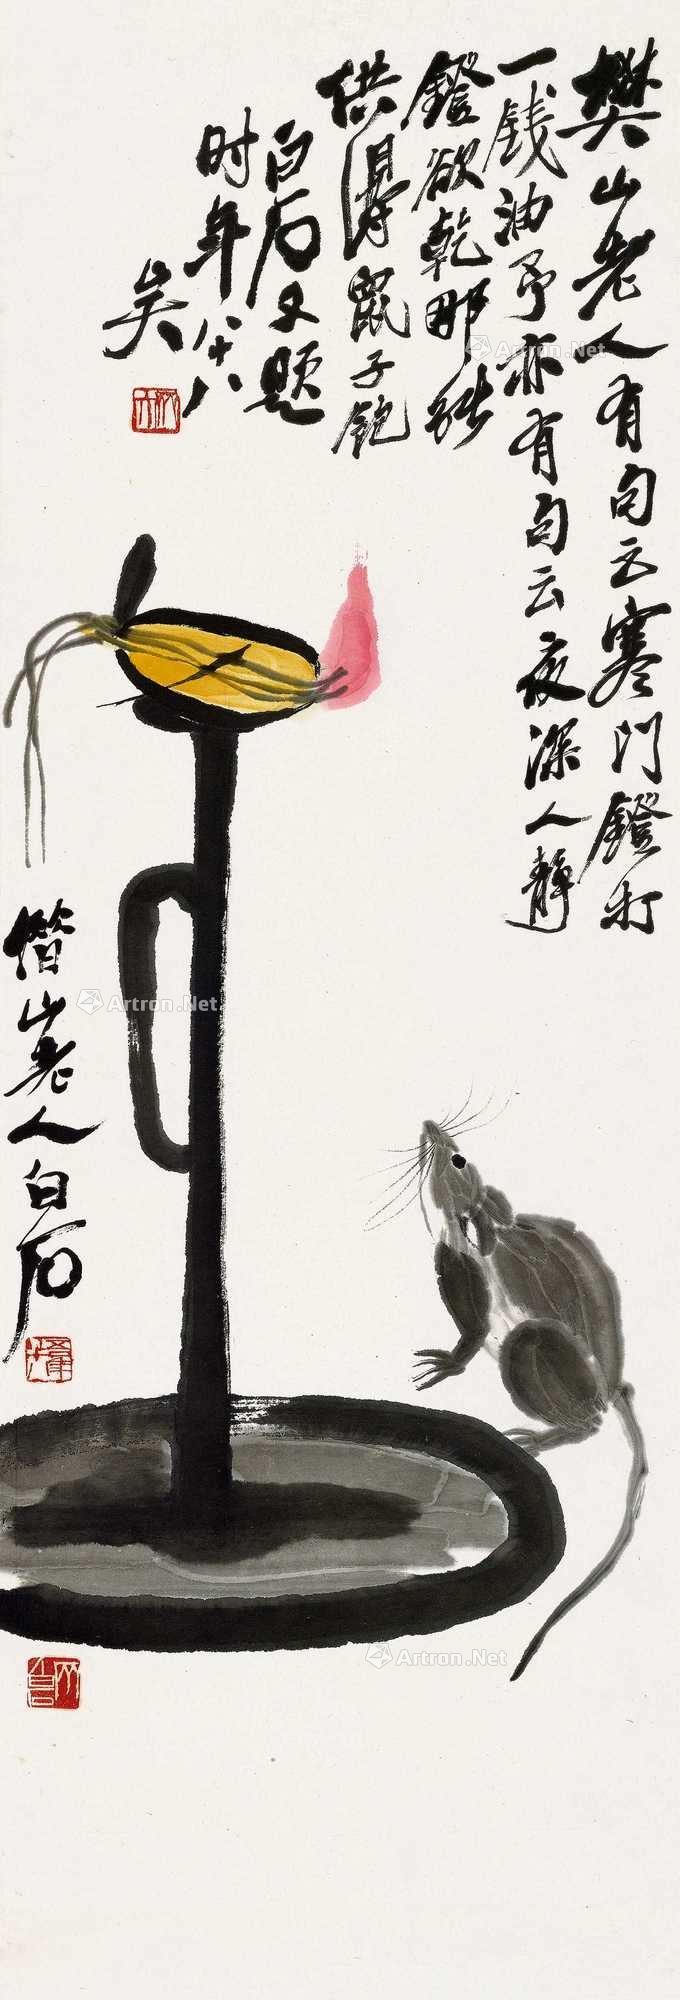 樊山老人有句云寒门镫打
一钱油予亦有句云夜深人静
镫欲乾那能
供得鼠子饱
白石又题
时年八十八
矣
借山老人白石
Artron.Net
Artron.Net
Artron.Net